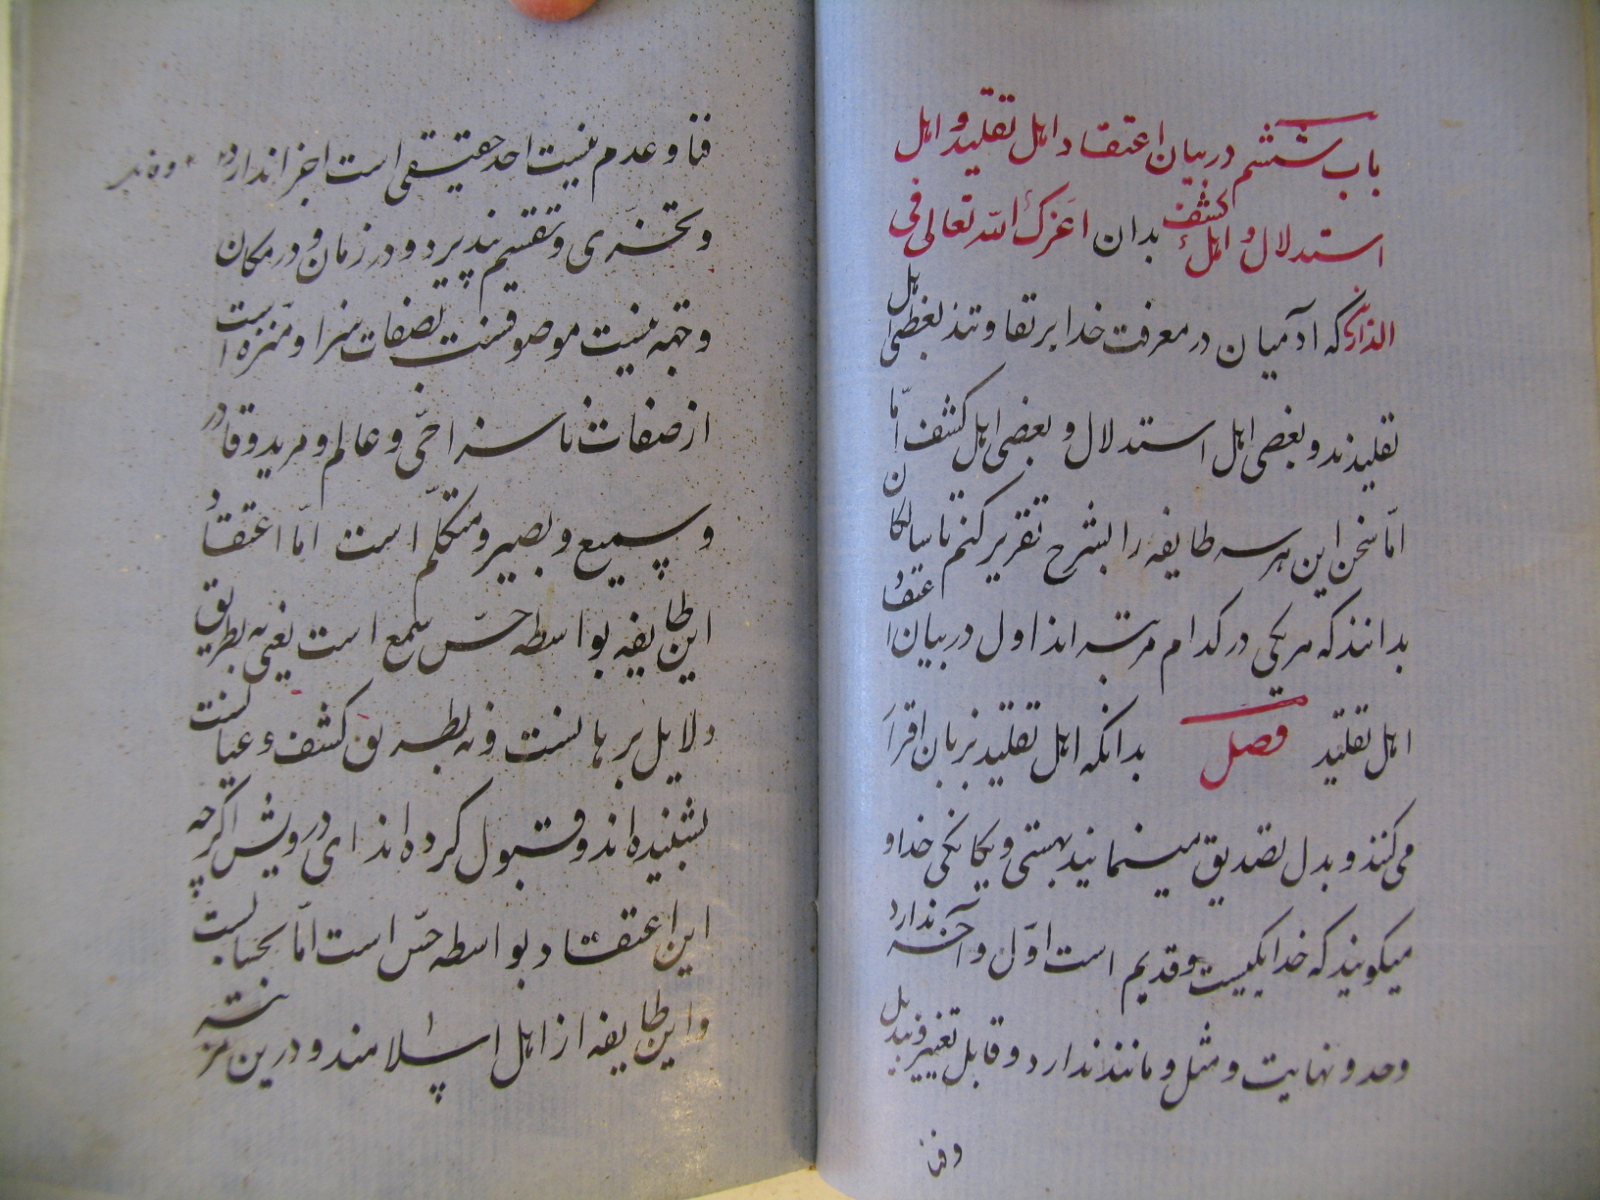 باب ششم در بیان اعتقاد اهل تقلید و اهل
استدلال و اهل کشف بدان اعزک الله تعالی فی
الدارین که آدمیان در معرفت خدا بر تفاوتند بعضی اهل
تقلیدند و بعضی اهل استدلال و بعضی اهل کشف اما
اما سخن این هر سه طایفه را بشرح تقریر کنم تا سالکان
بدانند که هر یکی در کدام مرتبه اند اول در بیان اعتقاد
اهل تقلید فصل بدانکه اهل تقلید بزبان اقرار
می کنند و بدل تصدیق مینمایند بهستی و یکانکی خدا و
میکویند که خدا یکیست و قدیم است اول و آخر ندارد
و حد و نهایت و مثل و مانند ندارد و قابل تغییر و تبدیل
و فنا
فنا و عدم نیست احد حقیقی است اجزا ندارد
و تجزی و تقسیم نپذیرد و در زمان و در مکان
و جهة نیست موصوفست بصفات سزا و منزه است
از صفات ناسزا حی و عالم و مرید و قادر
و سمیع و بصیر و متکلم است اما اعتقاد
این طایفه بواسطه حس سمع است یعنی نه بطریق
دلایل برهانست و نه بطریق کشف و عیانست
بشنیده اند و قبول کرده اند ای درویش اکرچه
این اعتقاد بواسطه حس است اما بحسابست
و این طایفه از اهل اسلامند و درین مرتبه